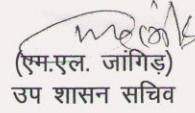 (एम.एल. जांगिड़)
उप शासन सचिव